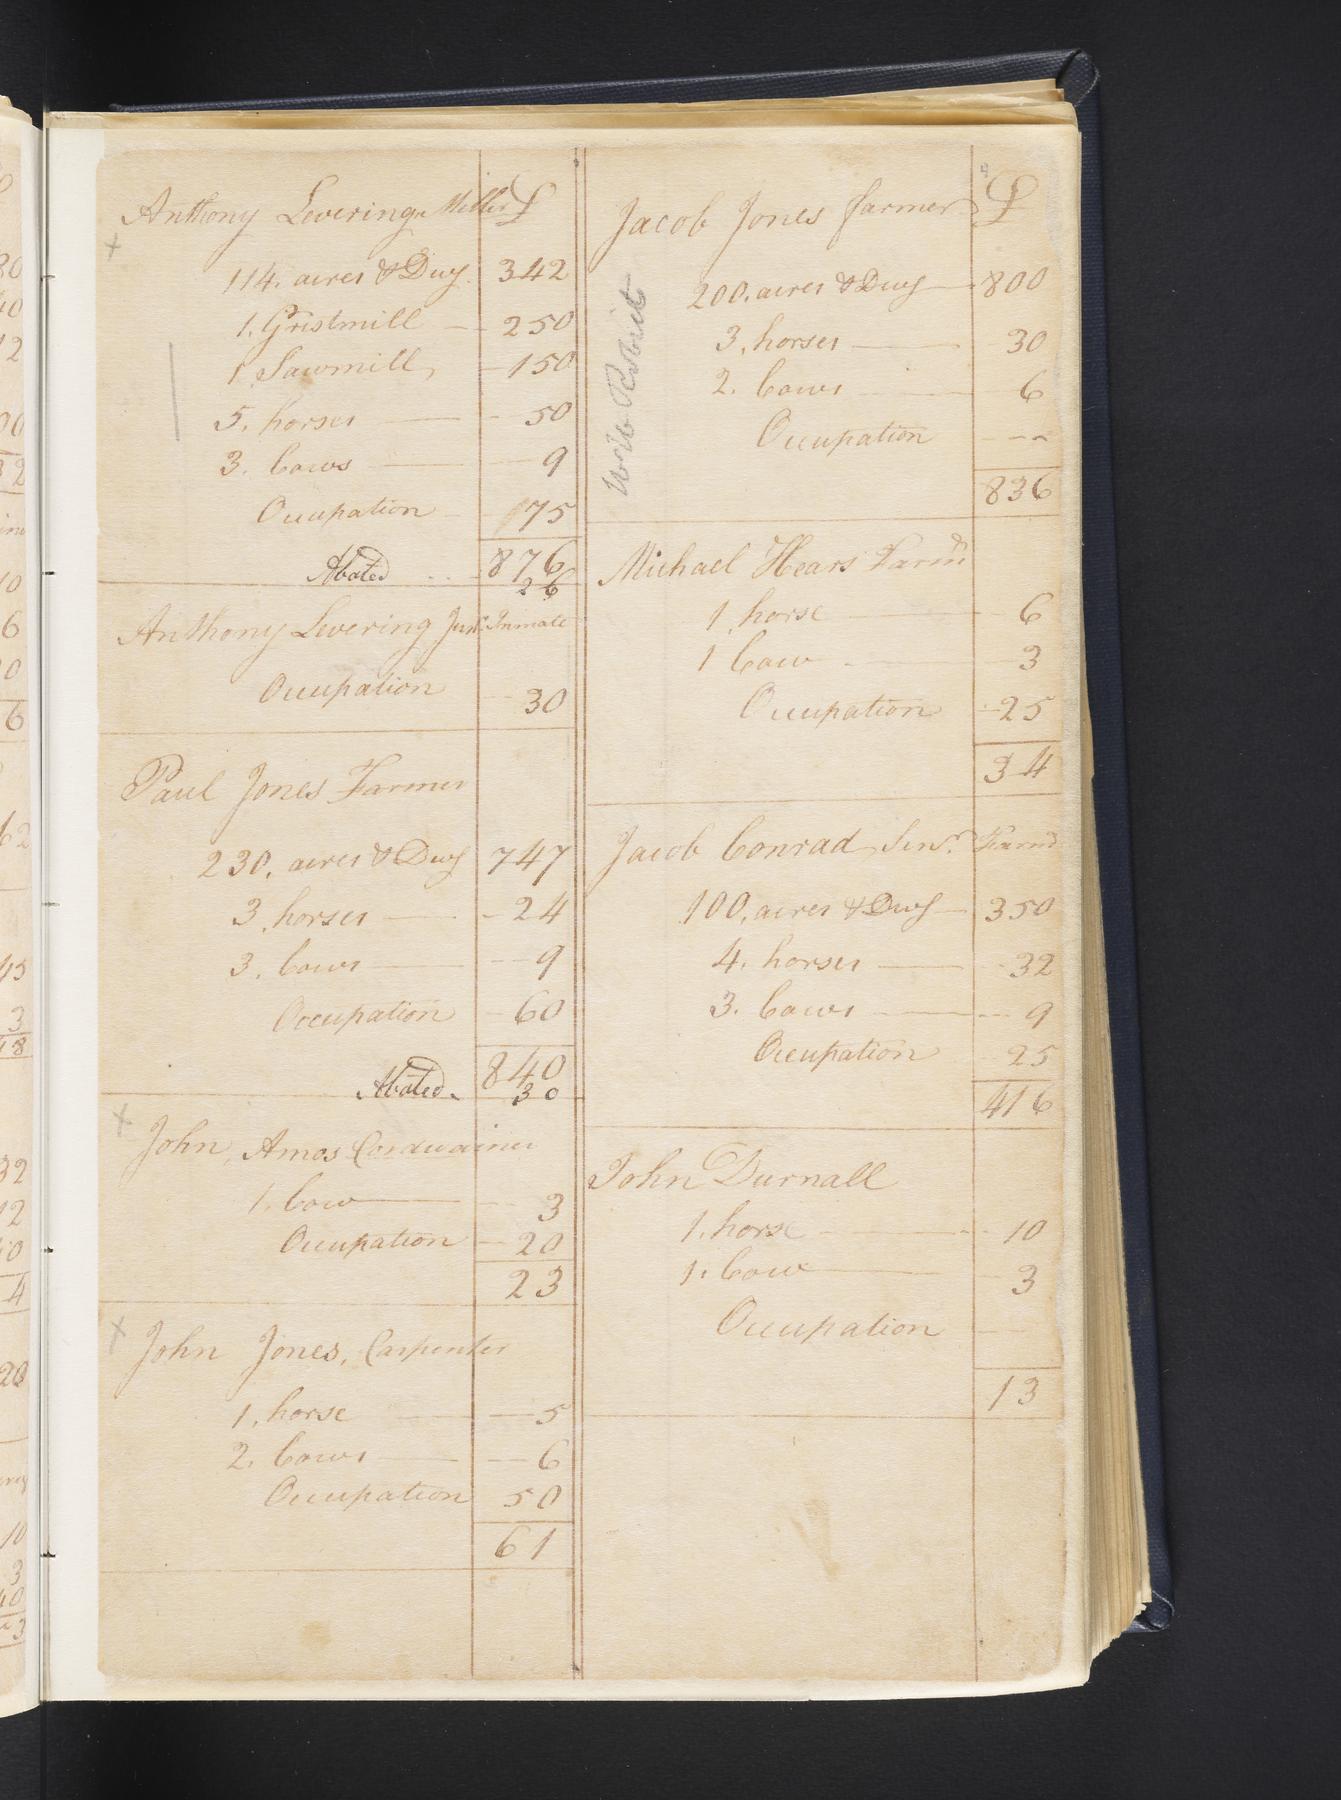 Anthony Levering Miller £
114. acres & Dwg. 342
1. Gristmill 250
1 Sawmill, 150
5. horses 50
3. Cows 9
Occupation 75
876
Abated 26
Anthony Levering Junr. Inmate
Occupation 30
Paul Jones Farmer
230. acres & Dwg 747
3. horses 24
3. Cows 9
Occupation 60
840
Abated. 30
John Amos Cordwainer
1. Cow 3
Occupation 20
23
John Jones, Carpenter
1. horse 5
2. Cows 6
Occupation 50
61
Jacob Jones farmer £
200. acres & Dwg 800
3. horses 30
2. Cows 6
Occupation
836
Michael Hears Farmr
1. horse 6
1 Cow 3
Occupation 25
34
Jacob Conrad Senr. Farmr
100. acres & Dwg 350
4. horses 32
3. Cows 9
Occupation 25
416
John Durnall
1. horse 10
1. Cow 3
Occupation
13